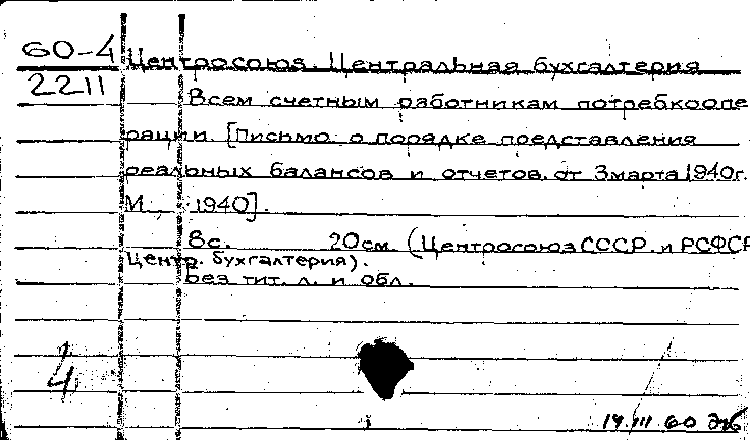 60-4 Центросоюз. Центральная бухгалтерия
2211
Всем счетным работникам потребкоопе
рации. [Письмо о порядке представления
реальных балансов и отчетов. от 3 марта 1940г.
М., 1940].
8с. 20см. (Центросоюз СССР и РСФСР
Центр. бухгалтерия).
Без тит. л. и обл.
4
19 III 60